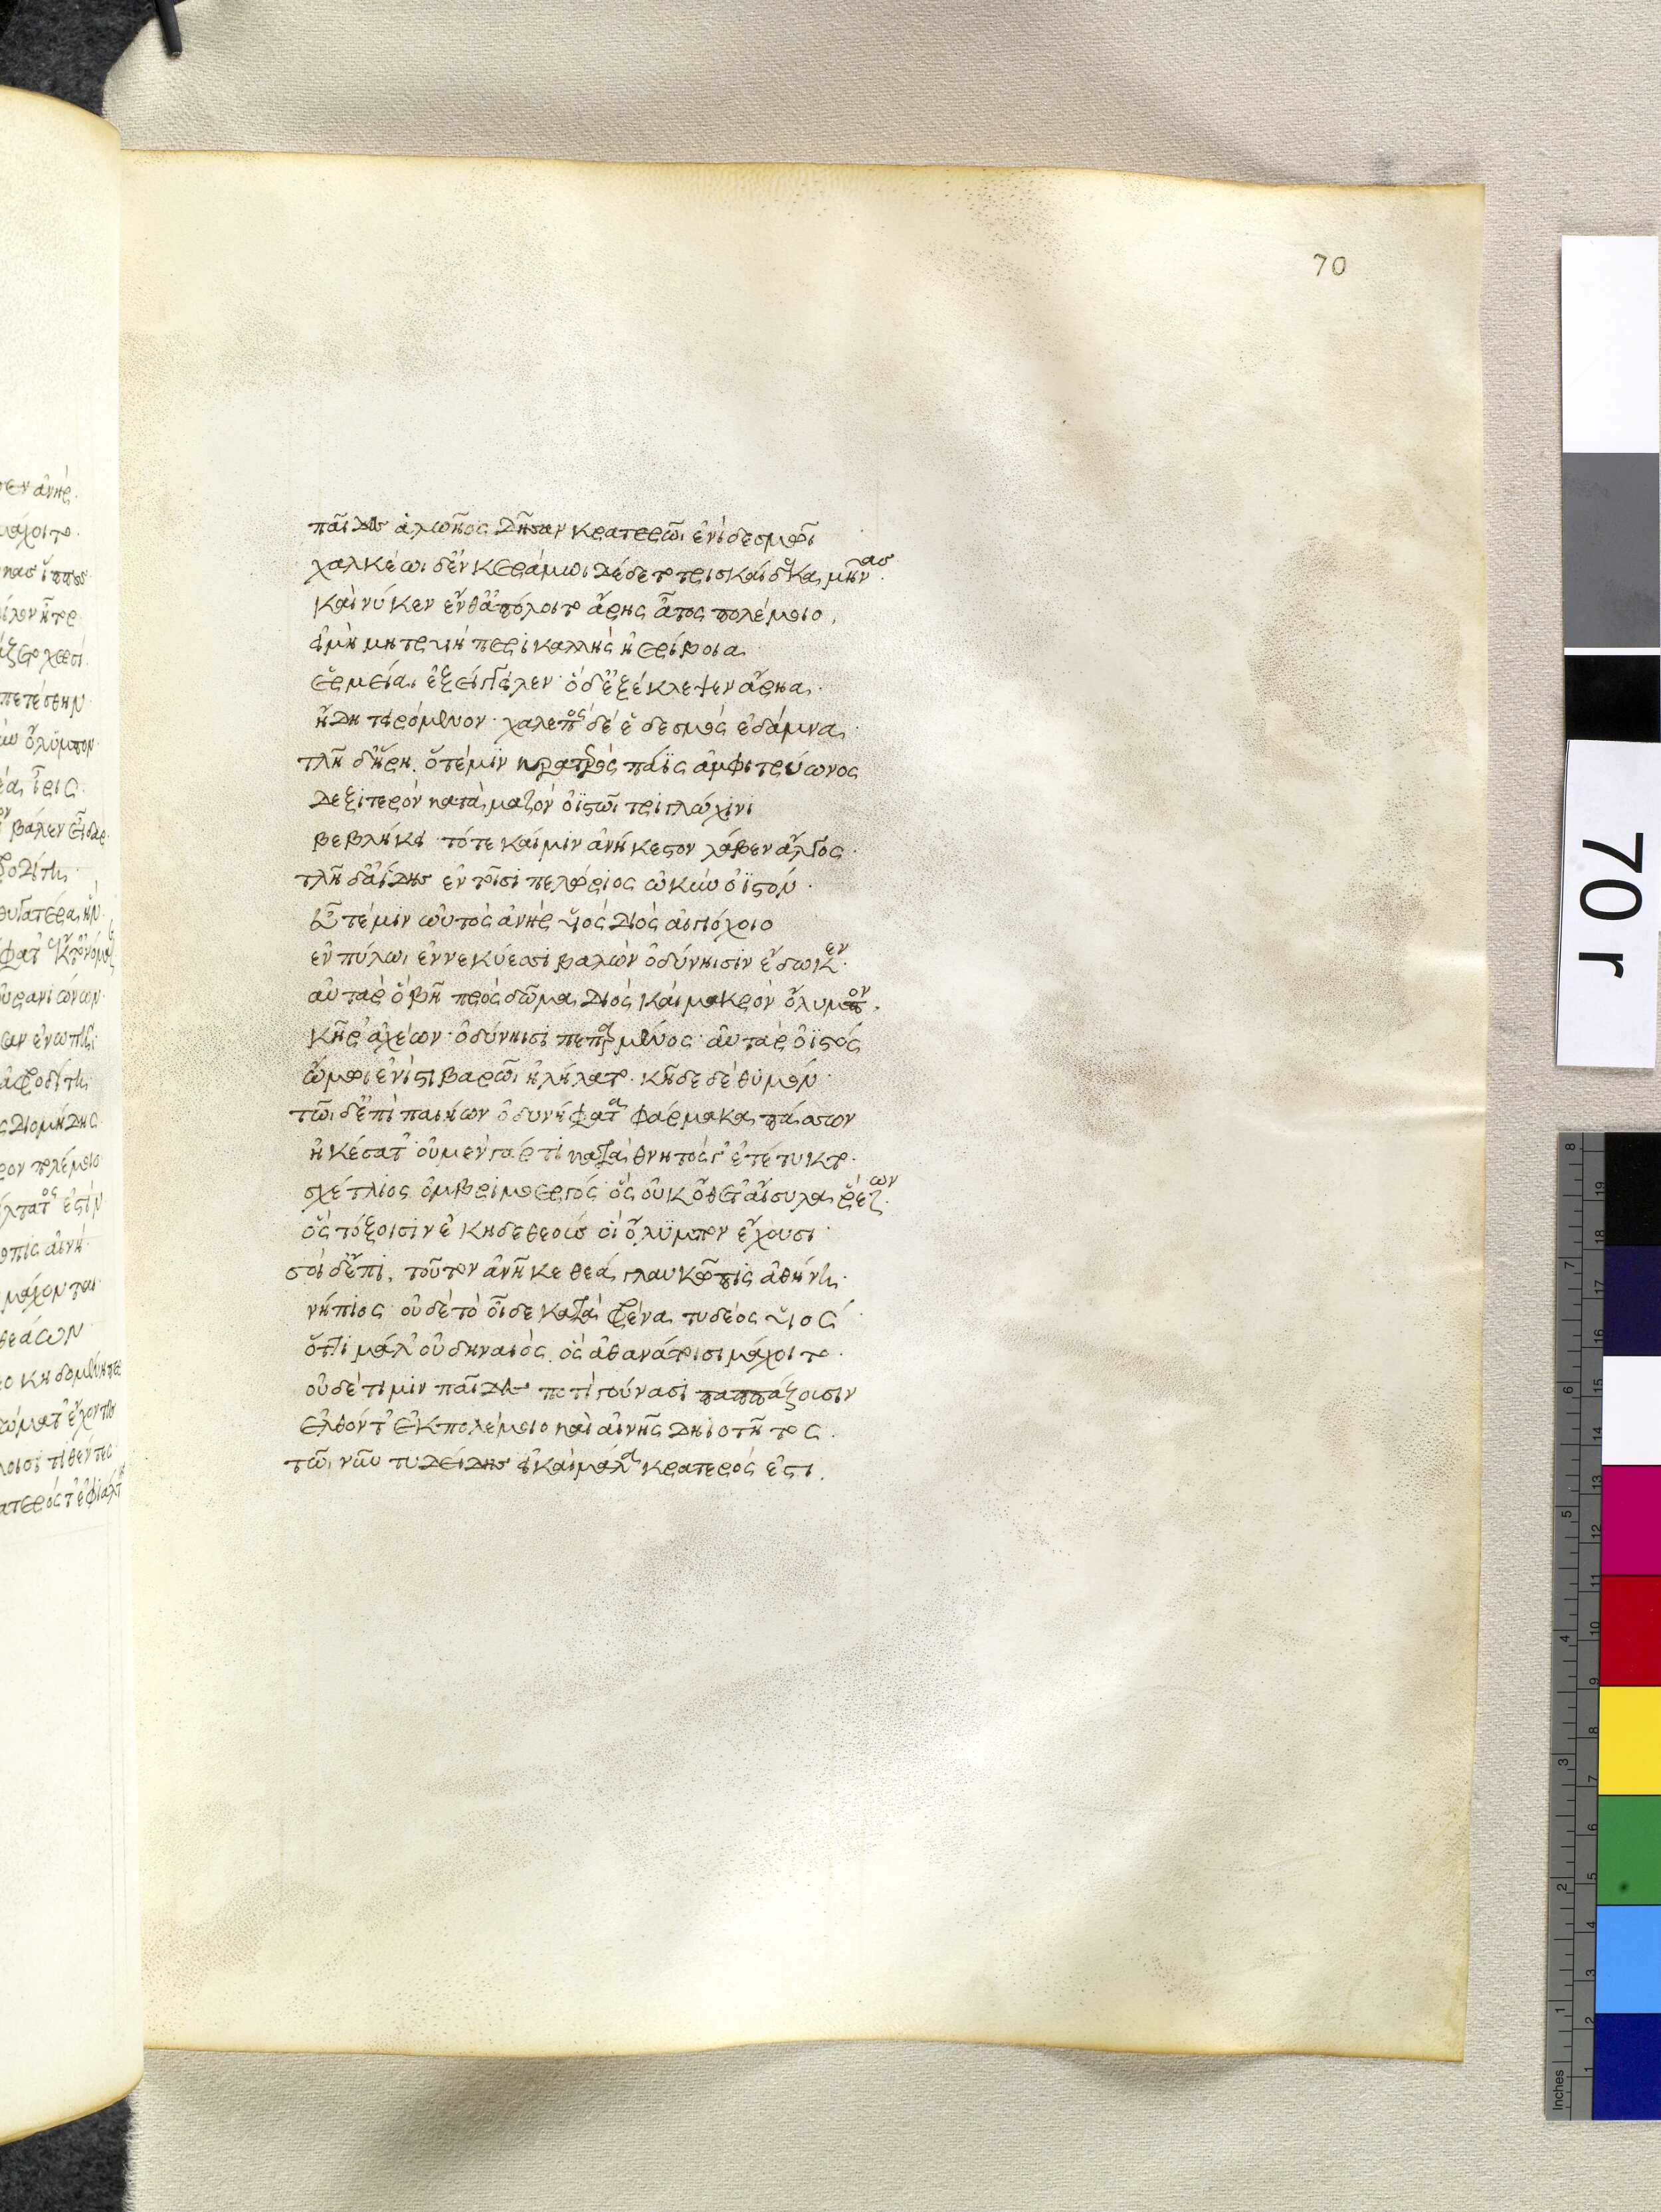 70
παῖδες ἀλωῆος δῆσαν κρατερῶι ἐνὶ δεσμῶι
χαλκέωι δ' ἐν κεράμωι δέδετο τρισκαίδεκα μῆνας·
καὶ νύ κεν ἔνθ' ἀπόλοιτο ἄρης ἆτος πολέμοιο,
εἰ μὴ μητρυιὴ περικαλλὴς ἠερίβοια
ἑρμείαι ἐξείγγειλεν· ὁ δ' ἐξέκλεψεν ἄρηα·
ἤδη τειρόμενον· χαλεπὸς δέ ἑ δεσμὸς ἐδάμνα·
τλῆ δ' ἥρη. ὅτέ μιν κρατερὸς πάϊς ἀμφιτρύωνος
δεξιτερὸν κατὰ μαζὸν ὀϊστῶι τριγλώχινι
βεβλήκει· τότε καί μιν ἀνήκεστον λάβεν ἄλγος·
τλῆ δ' ἀΐδης ἐν τοῖσι πελώριος ὠκὺν ὀϊστόν·
εὖτέ μιν ωὑτὸς ἀνὴρ υἱὸς διὸς αἰγιόχοιο
ἐν πύλωι ἐν νεκύεσσι βαλὼν ὀδύνηισιν ἔδωκεν·
αὐτὰρ ὃ βῆ πρὸς δῶμα διὸς καὶ μακρὸν ὄλυμπον.
κῆρ ἀχέων· ὀδύνηισι πεπαρμένος· αὐτὰρ ὀϊστός
ὤμωι ἐνὶ στιβαρῶι ἠλήλατο. κῆδε δὲ θυμόν·
τῶι δ' ἐπὶ παιήων ὀδυνήφατα φάρμακα πάσσων
ἠκέσατ' οὐ μὲν γάρ τι καταθνητός γ' ἐτέτυκτο·
σχέτλιος ὀμβριμοεργός ὃς οὐκ ὄθετ' αἴσυλα ῥέζων·
ὃς τόξοισιν ἔκηδε θεοὺς οἳ ὄλυμπον ἔχουσι·
σοὶ δ' ἐπὶ, τοῦτον ἀνῆκε θεά γλαυκῶπις ἀθήνη·
νήπιος· οὐδὲ τὸ οἶδε κατὰ φρένα τυδέος υἱός
ὅττι μάλ' οὐ δηναιὸς ὃς ἀθανάτοισι μάχοιτο·
οὐδέ τί μιν παῖδες ποτὶ γούνασι παππάζουσιν
ἐλθόντ' ἐκ πολέμοιο καὶ αἰνῆς δηιοτῆτος.
τῶι νῦν τυδείδης εἰ καὶ μάλα κρατερός ἐστι.
70 r